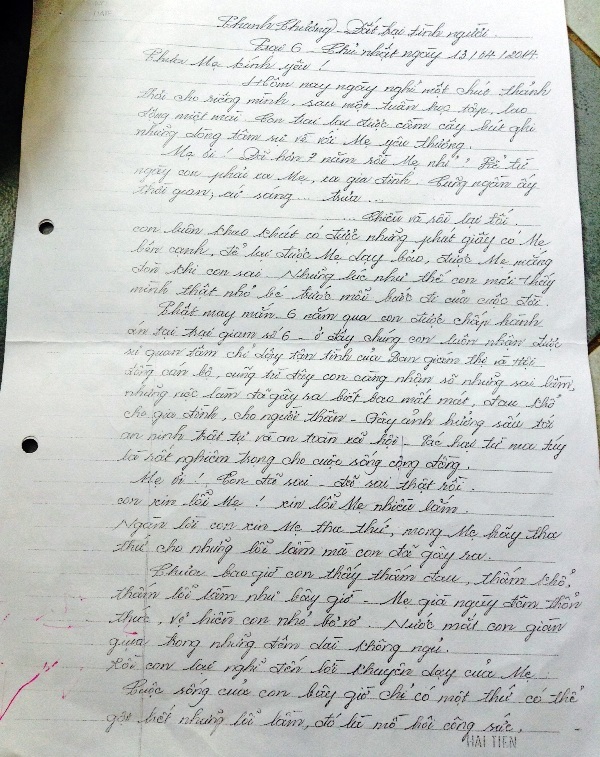 Thanh Chương - Đất đại tình người.
Trại 6 - Chủ nhật ngày 13/04/2014.
Thưa Mẹ kính yêu!
Hôm nay ngày nghỉ một chút thảnh
thơi cho riêng mình, sau một tuần học tập, lao
động miệt mài. Con trai lại được cầm cây bút ghi
những dòng tâm sự về với Mẹ yêu thương.
Mẹ ơi! Đã hơn 7 năm rồi Mẹ nhỉ? Kể từ
ngày con phải xa Mẹ, xa gia đình. Cũng ngần ấy
thời gian, cứ sáng... trưa...
... Chiều và rồi lại tối...
con luôn khao khát có được những phút giây có Mẹ
bên cạnh, để lại được Mẹ dạy bảo, được Mẹ mắng
đòn khi con sai. Những lúc như thế con mới thấy
mình thật nhỏ bé trước mỗi bước đi của cuộc đời.
Thật may mắn, 6 năm qua con được chấp hành
án tại trại giam số 6 - ở đây chúng con luôn nhận được
sự quan tâm chỉ dậy tận tình của Ban giám thị và Hội
đồng cán bộ, cũng từ đây con càng nhận rõ những sai lầm,
những việc làm đã gây ra biết bao mất mát, đau khổ
cho gia đình, cho người thân - Gây ảnh hưởng xấu tới
an ninh trật tự và an toàn xã hội - Tác hại từ ma túy
là rất nghiêm trọng cho cuộc sống cộng đồng.
Mẹ ơi! Con đã sai - đã sai thật rồi.
con xin lỗi Mẹ! xin lỗi Mẹ nhiều lắm.
Ngàn lời con xin Mẹ tha thứ, mong Mẹ hãy tha
thứ cho những lỗi lầm mà con đã gây ra.
Chưa bao giờ con thấy thấm đau, thấm khổ,
thấm lỗi lầm như bây giờ - Mẹ già ngày đêm thổn
thức, vợ hiền con nhỏ bơ vơ. Nước mắt con giàn
giụa trong những đêm dài không ngủ.
Rồi con lại nghĩ đến lời khuyên dạy của Mẹ:
Cuộc sống của con bây giờ chỉ có một thứ có thể
gột hết những lỗi lầm, đó là mồ hôi công sức.
HẢI TIẾN